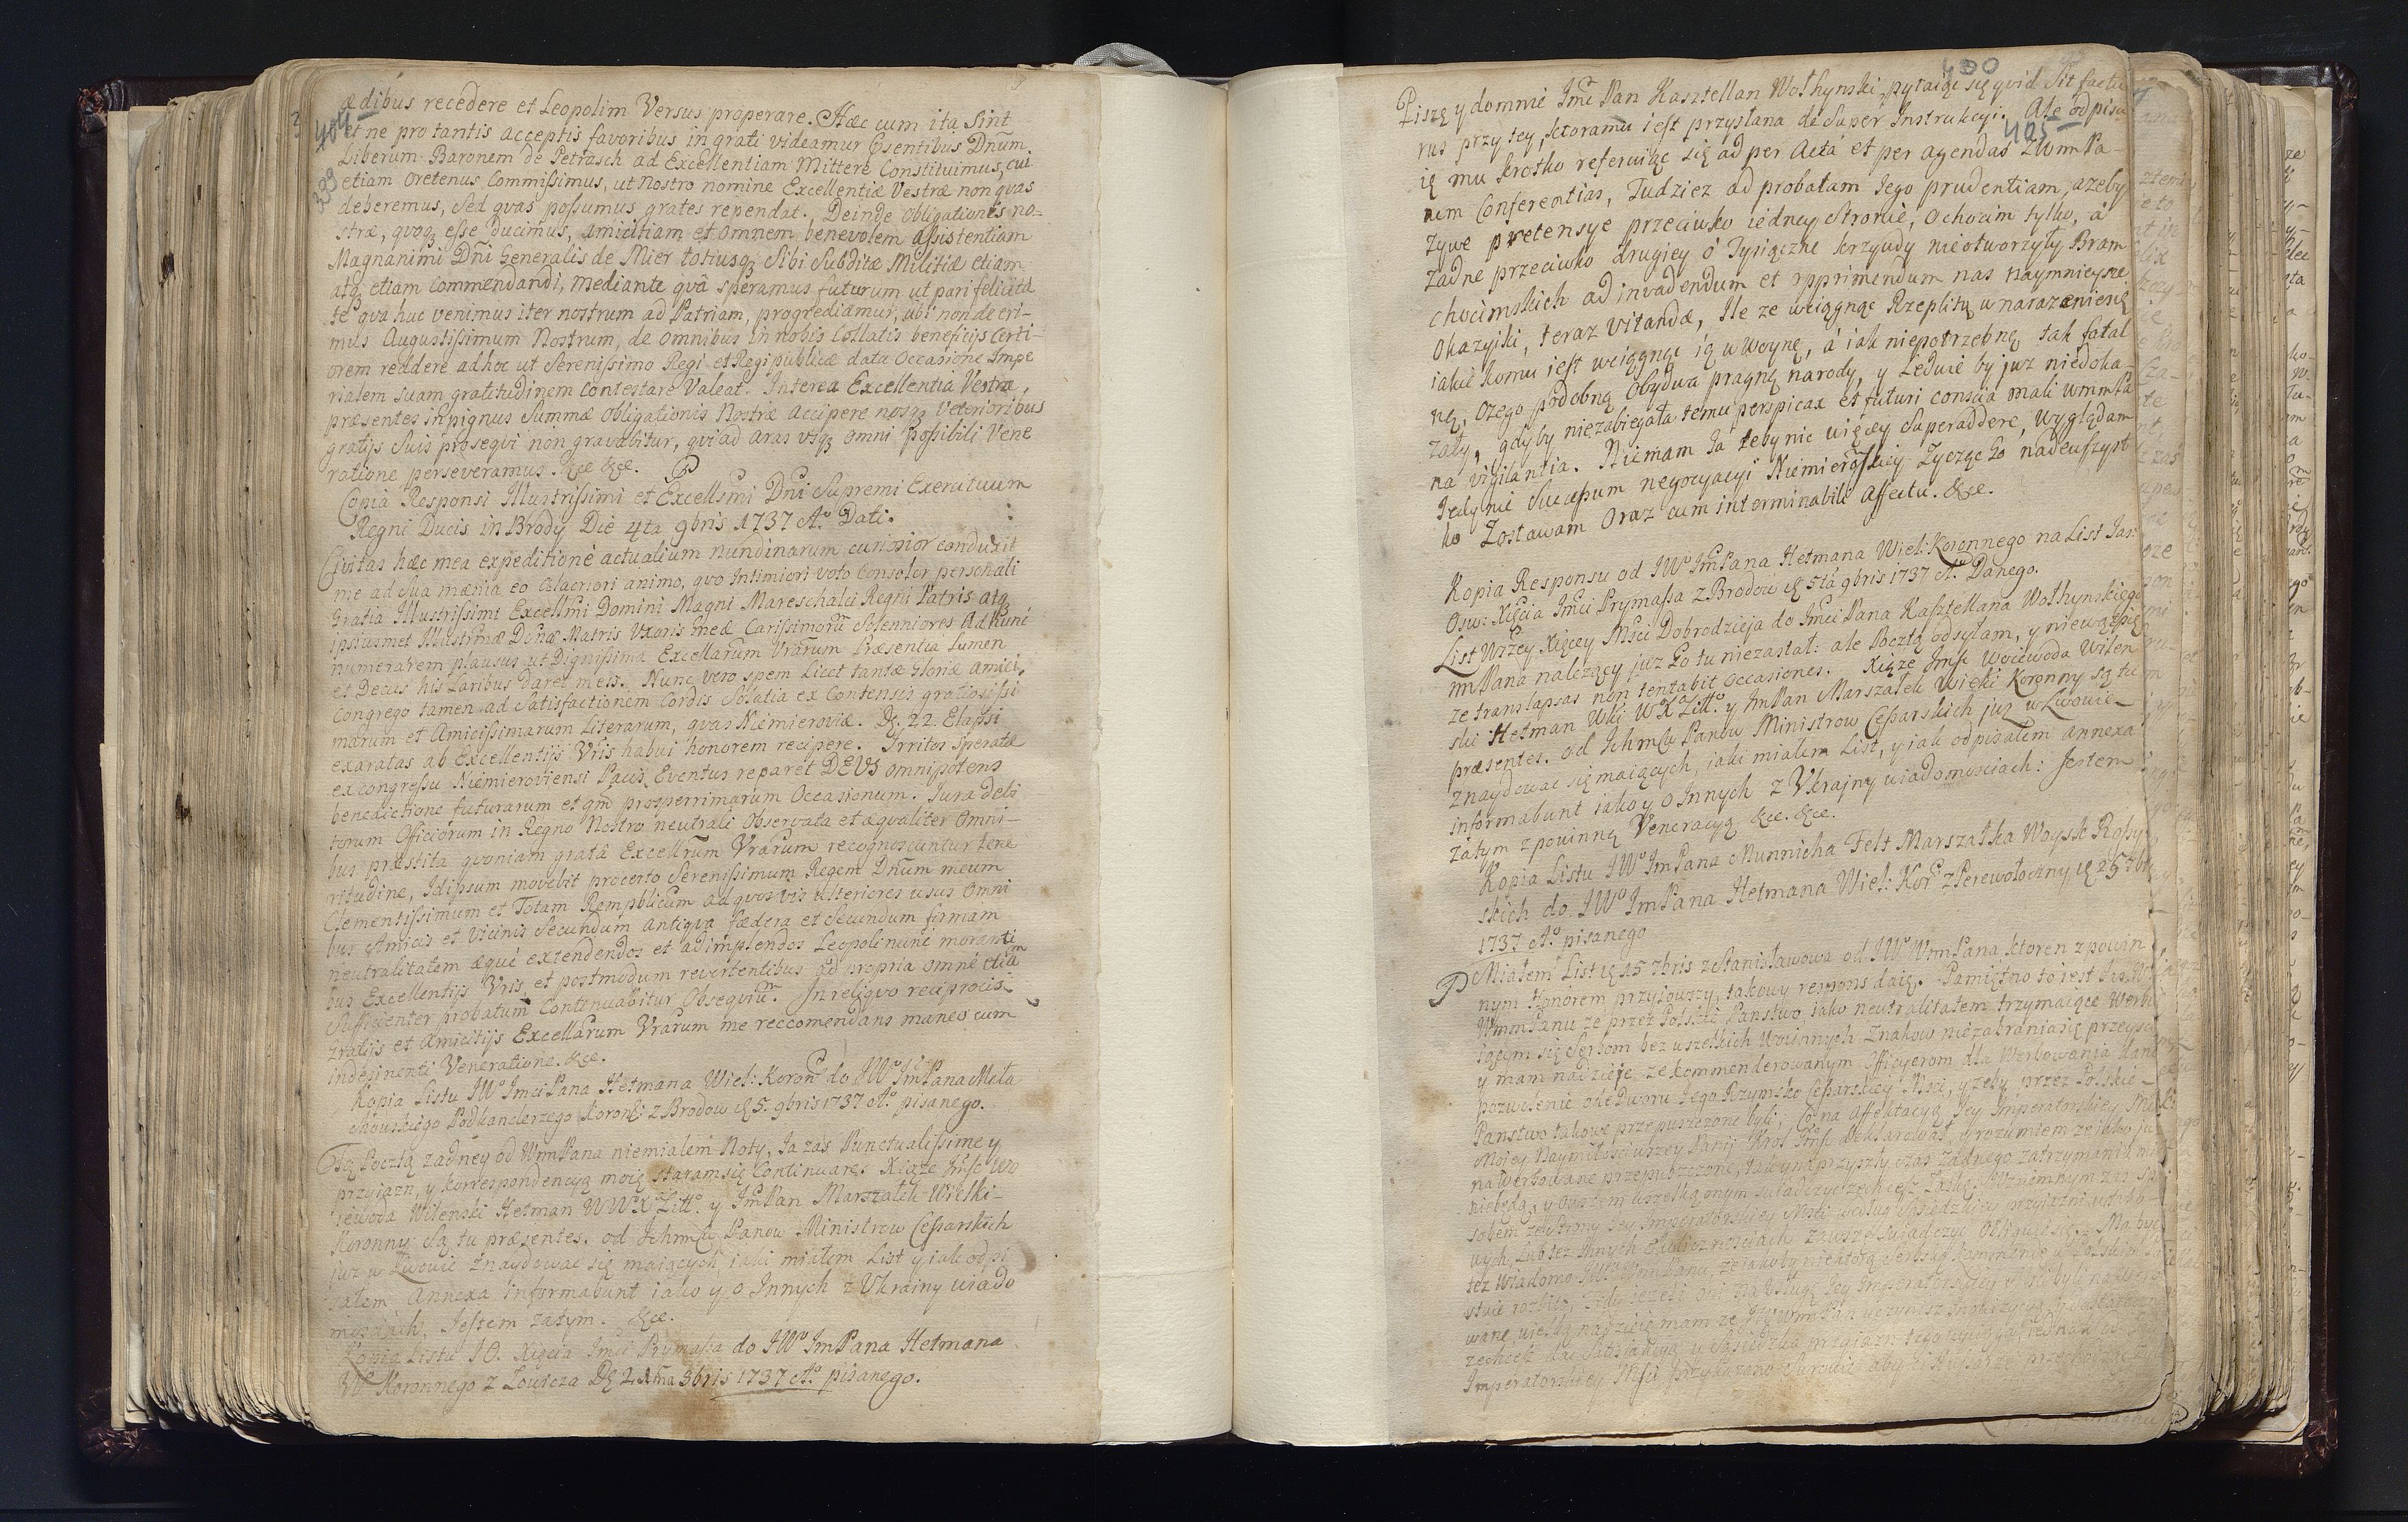 404
399
ædibus recedere et Leopolim Versus properare. Hæc cum ita Sint
et ne pro tantis acceptis favoribus ingrati videamur Csentibus Dnum
Liberum Baronem de Petrasch ad Excellentiam Mittere Constituimus, cui
etiam oretenus Commissimus, ut Nostro nomine Excellentiæ Vestræ non quas
deberemus, sed quas possumus grates rependat. Deinde obligationis no-
stræ, quoq esse ducimus, amicitiam et omnem benevolem assistentiam
Magnanimi Dni Generalis de Mier totiusq Sibi Subditæ Militiæ etiam
atq etiam Commendandi, mediante quâ speramus futurum ut pari felicita
te qva huc venimus iter nostrum ad Patriam, progrediamur, ubi non deeri-
mus Augustissimum Nostrum, de omnibus in nobis Collatis beneficijs Certi-
orem reddere adhoc ut Serenissimo Regi et Reipublicæ data occasione Impe
rialem Suam gratitudinem contestare Valeat. Interea Excellentia Vestra,
præsentes in pignus Summæ obligationis Nostræ accipere nosq Veterioribus
gratijs Suis prosequi non gravabitur, qui ad aras usq omni possibili Vene
ratione perseveramus. &ce &ce.
Copia Responsi Illustrissimi et Excellsmi Dni Supremi Exercituum
Regni Ducis in Brody Die 4ta 9bris 1737 Ao Dati.
Civitas hæc mea expeditione actualium nundinarum curiosior conduxit
me ad Sua mænia eo alacriori animo, quo Intimiori voto Consolor personali
Gratia Illustrissimi Excellmi Domini Magni Mareschalci Regni Patris atq
ipsiusmet Illustrmæ Dnæ Matris Uxoris meæ Carissimorū Solenniores Ad huni
numerarem plausus ut Dignissima Excellarum Vrarum Præsentia Lumen
et Decus his Laribus daret meis. Nunc vero spem Licet tantæ Gloriæ amici,
Congrego tamen ad Satisfactionem Cordis Solatia ex Contensis gratiosissi
marum et Amicissimarum Literarum, quas Niemieroviæ. D. 22. Elapsi
exaratas ab Excellentijs Vris habui honorem recipere. Irritos Speratæ
ex congressu Niemieroviensi Pacis Eventus reparet DEVS omnipotens
benedictione futurarum et qm prosperrimarum Occasionum. Iura debi
torum Officiorum in Regno Nostro neutrali Observata et æqualiter Omni-
bus præstita quoniam gratâ Excellrum Vrarum recognoscuntur tene
ritudine, Idipsum movebit procerto Serenissimum Regem Dnum meum
Clementissimum et Totam Rempblicum ad quos vis ulteriores usus Omni
bus Amicis et Vicinis Secundum antiqva fædera et Secundum firmam
neutralitatem æquè extendendos et adimplendos Leopoli nunc moranti
bus Excellentijs Vris, et postmodum revertentibus ad propria omne etiam
Sufficienter probatum Continuabitur Obsequiū. In reliquo reciprocis
gratijs et Amicitijs Excellarum Vrarum me reccomendans maneo cum
indesinenti Veneratione. &ce.
Kopia Listu JWo ImciPana Hetmana Wiel: Koronno do JWo ImPana Mała
chowskiego Podkanclerzego Koronn: z Brodow d 5. 9bris 1737 Ao pisanego.
Tą Pocztą zadney od WmPana niemialem Noty, Ja zas Punctualissime y
przyiazn, y korrespondencyą moię staram się Continuare. Xiąze Imść Wo
iewoda Wilenski Hetman WWoX Litto y ImPan Marszałek Wielki-
Koronny Są tu præsentes. od Ichmśći Panow Ministrow Cessarskich
juz w Lwowie Znaydowac się maiących, iaki miałem List y iak odpi
sałem, Annexa informabunt iako y o Innych z Ukrainy wiado
mosciach, Jestem zatym. &ce.
Kopia Listu JO. Xięcia Imći Prymassa do JWo ImPana Hetmana
Wo Koronnego z Łowicza D 21ma 9bris 1737 Ao pisanego.
400
405
Piszę y do mnie Imć Pan Kasztellan Wołhynski, pytaiąc się quid Sit factu
rus przy tey, ktora mu iest przysłana de Super Instrukcyi. Ale odpisa
ię mu krotko referuiąc się ad per Acta et per agendas ZWmPa-
nem Conferentias, Tudziez ad probatam Iego prudentiam, azeby
zywe pretensye przeciwko iedney Stronie, ochocim tylko, á
zadne przeciwko drugiey o Tysiączne krzywdy nieotworzyły Bram
chocimskich ad invadendum et opprimendum nas naymnieysze
Okazyiki, teraz Vitandæ, Ile ze wciągnąc Rzeplitą w narazenienię
iakie komu iest wciągnąc ią w Woynę, á iak niepotrzebną tak fatal
ną, czego podobną Obydwa pragną narody, y Ledwie by juz niedoka-
zały, gdyby niezabiegała temu perspicax et futuri conscia mali wmmPa
na vigilantia. Niemam Ja teby nic więcey Superaddere, wyglądam
Jedynie Sucessum negocyacyi Niemierowskiey Zycząc Go nadewszyst
ko Zostawam Oraz cum interminabili affectu. &ce.
Kopia Responsu od JWo ImPana Hetmana Wiel: Koronnego na List Jas:
Osw: Xięcia Imći Prymassa z Brodow d 5ta 9bris 1737 Ao Danego.
List Wszey Xięcey Mści Dobrodzieja do Imći Pana Kasztellana Wołhynskiego
mnPana nalezący juz Go tu niezastał: ale Pocztą odsyłam, y niewątpię
ze translapsas non tentabit occasiones. Xiąze Imść Woiewoda Wilen
ski Hetman Wlki WXLitto. y ImPan Marszałek Wielki Koronny są tu
præsentes. od Ichmśći Panow Ministrow Cessarskich juz w Lwowie
Znaydowac się maiących, iaki miałem List, y iak odpisałem annexa
informabunt iako y o Innych z Ukrajny wiadomosciach: Jestem
zatym z powinną Veneracyą &ce. &ce.
Kopia Listu JWo ImPana Munnicha Felt Marszałka Woysk Rossy
skich do JWo ImPana Hetmana Wiel: Koro z Perewołoczny d 25 7br
1737 Ao pisanego
Miałem List d 15 7bris z Stanisławowa od JWo WmPana ktoren z powin
nym Honorem przyiowszy, takowy respons daię. Pamiętno to iest
WmmPanu ze przez Polskie Panstwo iako neutralitatem trzymaiące Werbu
iącym się Serbom bez wszelkich Woiennych Znakow niezabrania się przeyscie
y mam nadzieię ze kommenderowanym Officyerom dla Werbowania
pozwolenie ode Dworu Iego Rzymsko Cessarskiey Mści, y zeby przez Polskie
Panstwo takowe przepuszczone byli, Co na affektacyą Iey Imperatorskiey Mści
Moiey Naymiłosciwszey Panij Krol Imść deklarował, y rozumiem ze iako ju
nawerbowane przepuszczone, tak y na przyszły czas Zadnego zatrzymania
niebędą, y owszem wszelką onym swiadczyć zechcesz Łaskę, Wzaiemnym zas spo
sobem ze strony Iey Imperatorskiey Mści według Sąsiedzkiey przyiazni
wych, Lub tez Innych okolicznosciach zawsze swiadczyć Obliguię się. Ma byc
tez wiadomo JWo WmPanu, ze iakoby niektorą Serbską kommendę w Polskim
stwie rozbito, Tedy iezeli oni na usługę Iey Imperatorskiey Mści byli na
wane, wielką nadzieię mam ze JWo WmPan uczynisz Inkwizycyą, y
zechcesz dac Satisfakcyą y Sąsiedzką przyiazn
Imperatorskiey Mści przykazano Surowie aby